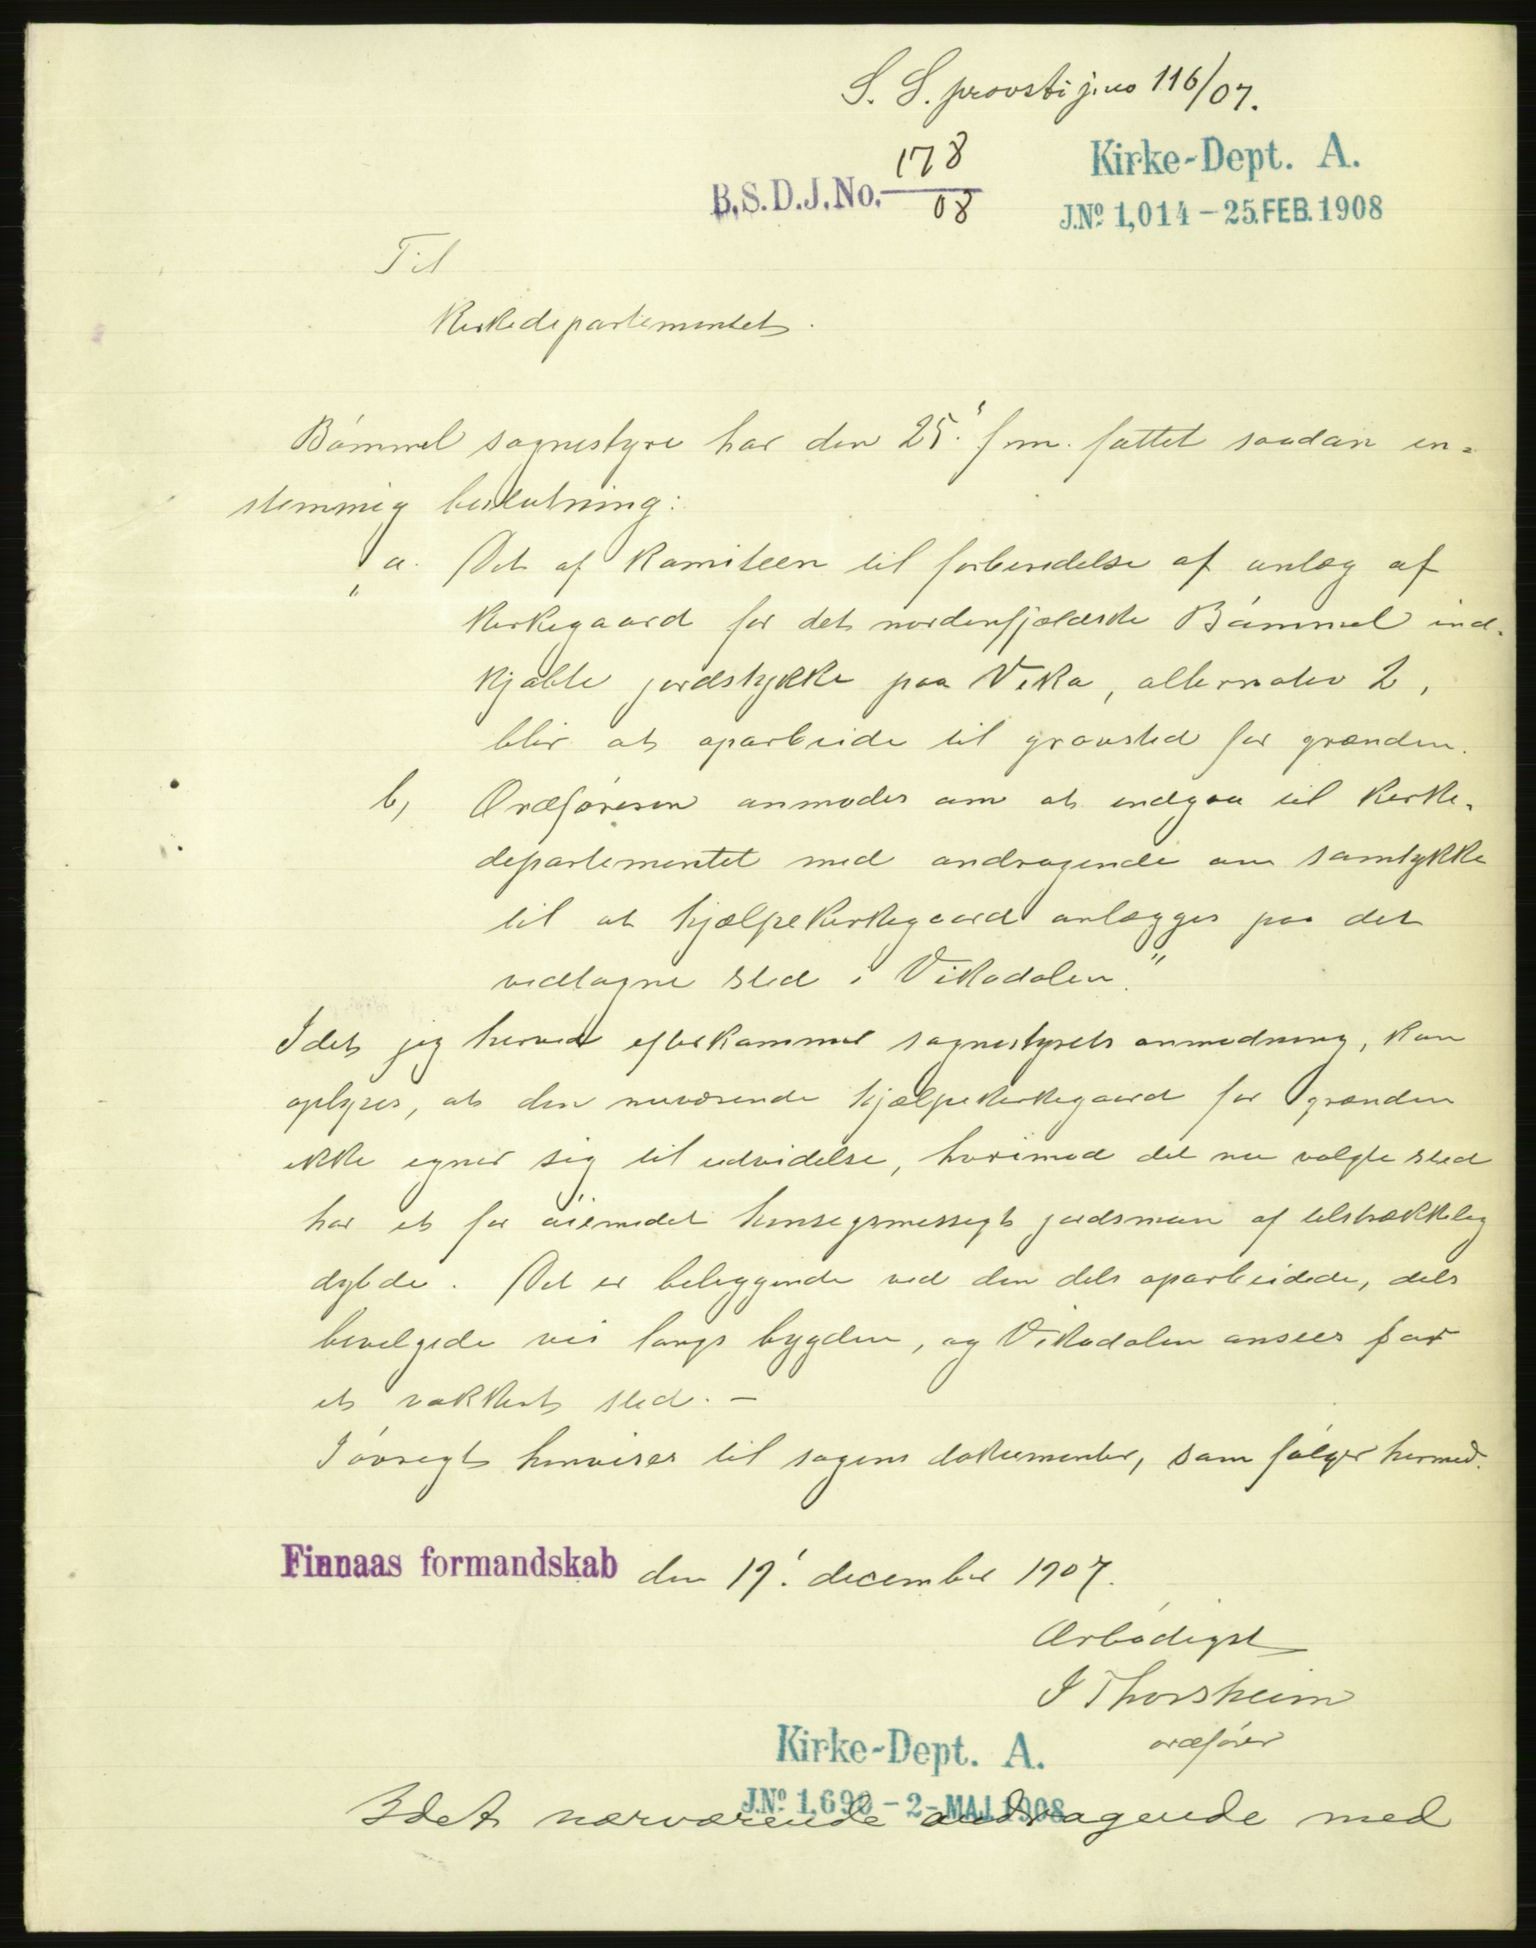 S. S. provsti j.no 116/07.
Kirke-Dept. A.
B.S.D.J.No. 178/08
J.No 1,014 - 25.FEB.1908
Til
Kirkedepartementet.
Bømmel sognestyre har den 25' f.m. fattet saadan en=
stemmig beslutning:
"a. Det af komiteen til forberedelse af anlæg af
kirkegaard for det nordenfjeldske Bømmel ind-
kjøbte jordstykke paa Vika, alternativ 2,
blir at oparbeide til gravsted for grænden.
b, Ordføreren anmodes om at indgaa til kirke-
departementet med andragende om samtykke
til at hjælpekirkegaard anlægges paa det
vedtagne sted i Vikadalen."
Idet jeg herved efterkommer sognestyrets anmodning, kan
oplyses, at den nuværende hjælpekirkegaard for grænden
ikke egner sig til udvidelse, hvorimod det nu valgte sted
har et for øiemedet hensigsmessigt jordsmon af tilstrækkelig
dybde. Det er beliggende ved den dels oparbeidede, dels
bevilgede vei langs bygden, og Vikadalen ansees for
et vakkert sted. -
I øvrigt henvises til sagens dokumenter, som følger hermed.
Finnaas formandskab den 19' december 1907.
Ærbødigst
I Thorsheim
ordfører
Kirke-Dept. A.
J.No 1,690 - 2 - MAI 1908
Idet nærværende andragende med